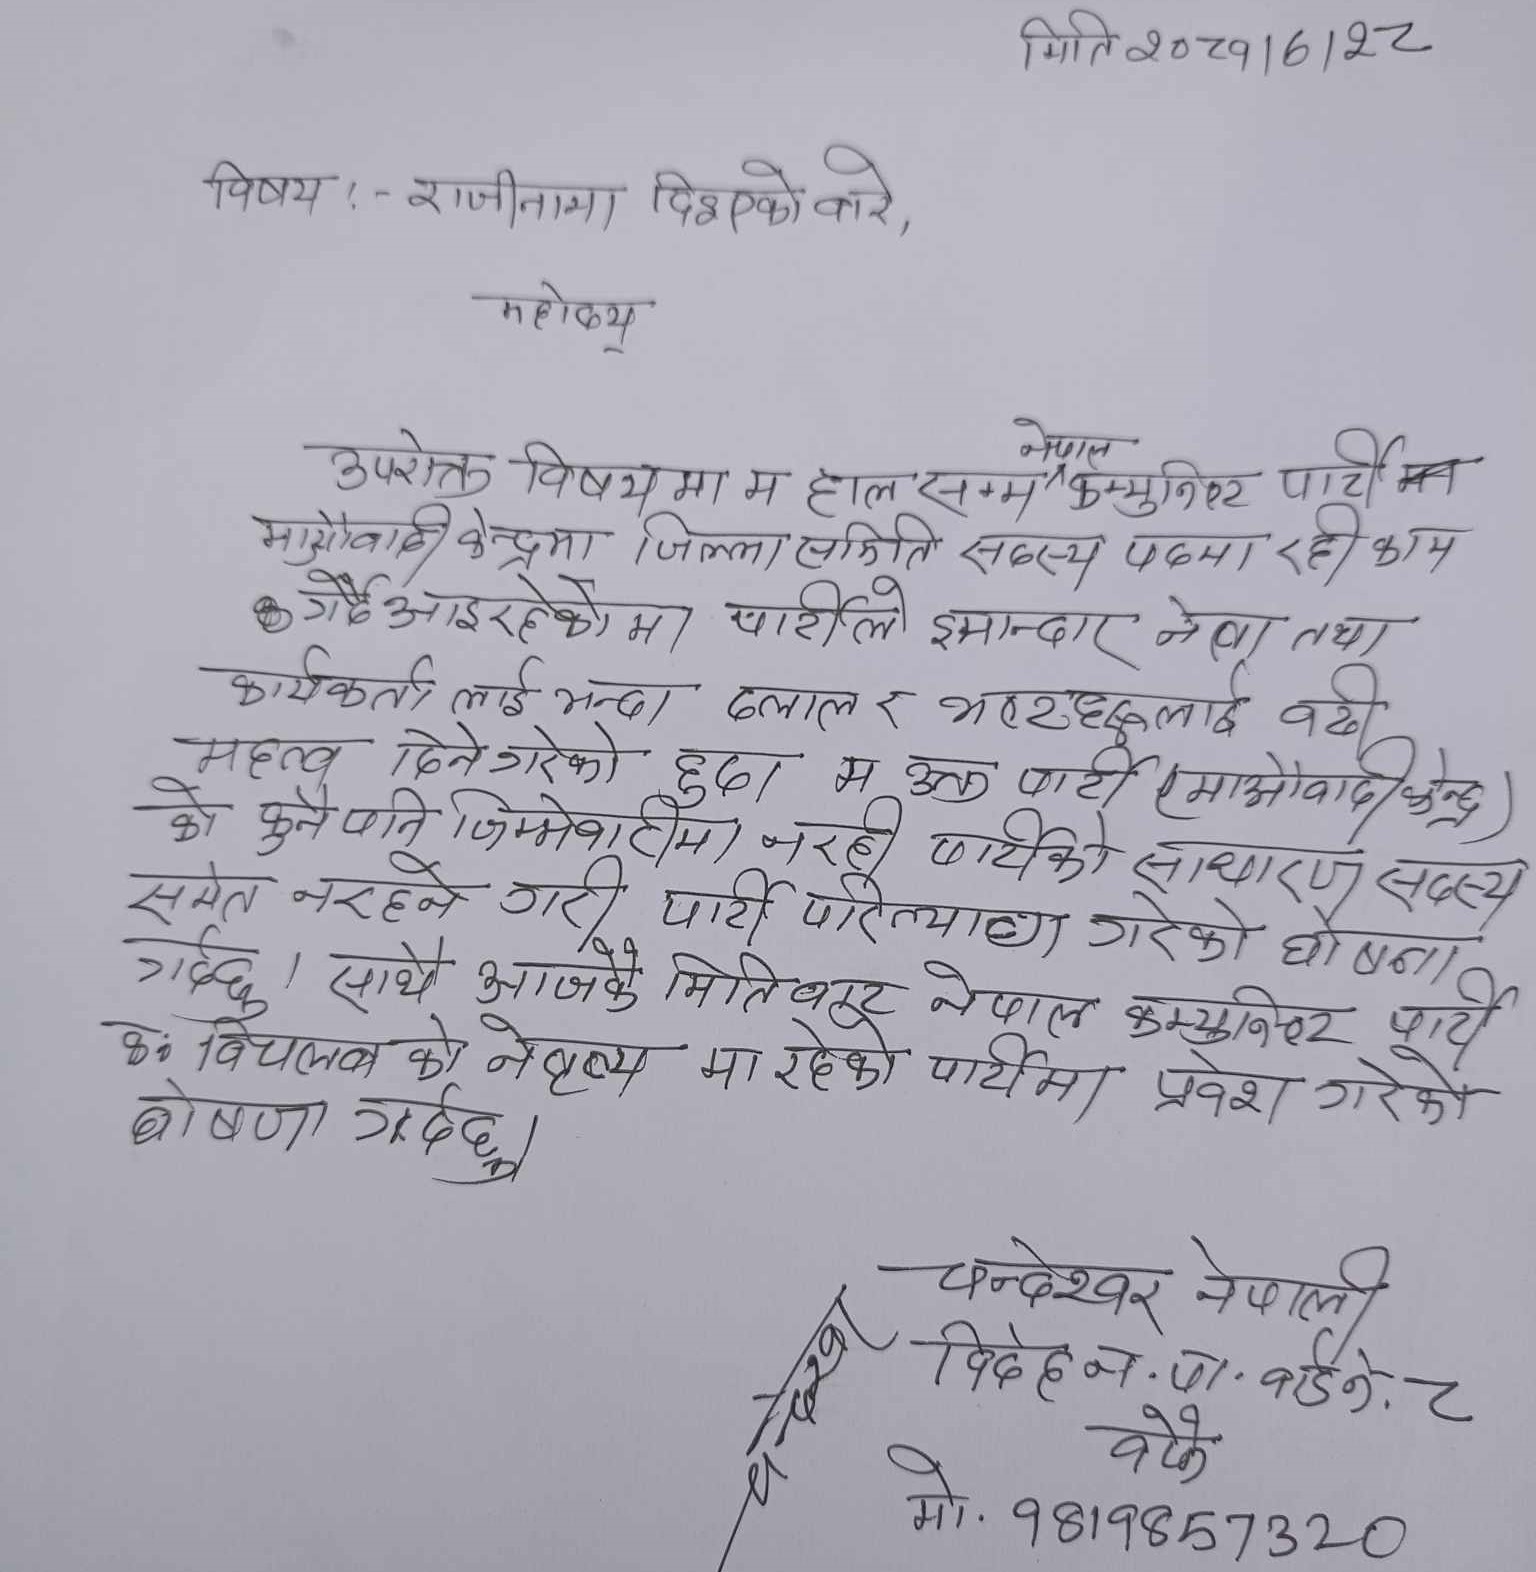 मिति २०८१/6/२८
विषय :- राजीनामा दिइएको बारे,
महोदय्
उपरोक्त विषयमा म हाल सम्म नेपाल कम्युनिष्ट पार्टी
माओवादी केन्द्रमा जिल्ला समिति सदस्य पदमा रही काम
गर्दै आइरहेकोमा पार्टीले इमान्दार नेता तथा
कार्यकर्ता लाई भन्दा दलाल र भ्रष्टहरुलाई बढी
महत्व दिने गरेको हुदा म उक्त पार्टी (माओवादी केन्द्र)
को कुनै पनि जिम्मेवारीमा नरही पार्टीको साधारण सदस्य
समेत नरहने गरी पार्टी परित्याग गरेको घोषना
गर्दछु। साथै आजकै मिति बाट नेपाल कम्युनिष्ट पार्टी
को नेतृत्व मा रहेको पार्टीमा प्रवेश गरेको
घोषणा गर्दछु।
चन्देश्वर नेपाली
विदेह न.पा. वार्ड नं. ८
मो. 9819857320